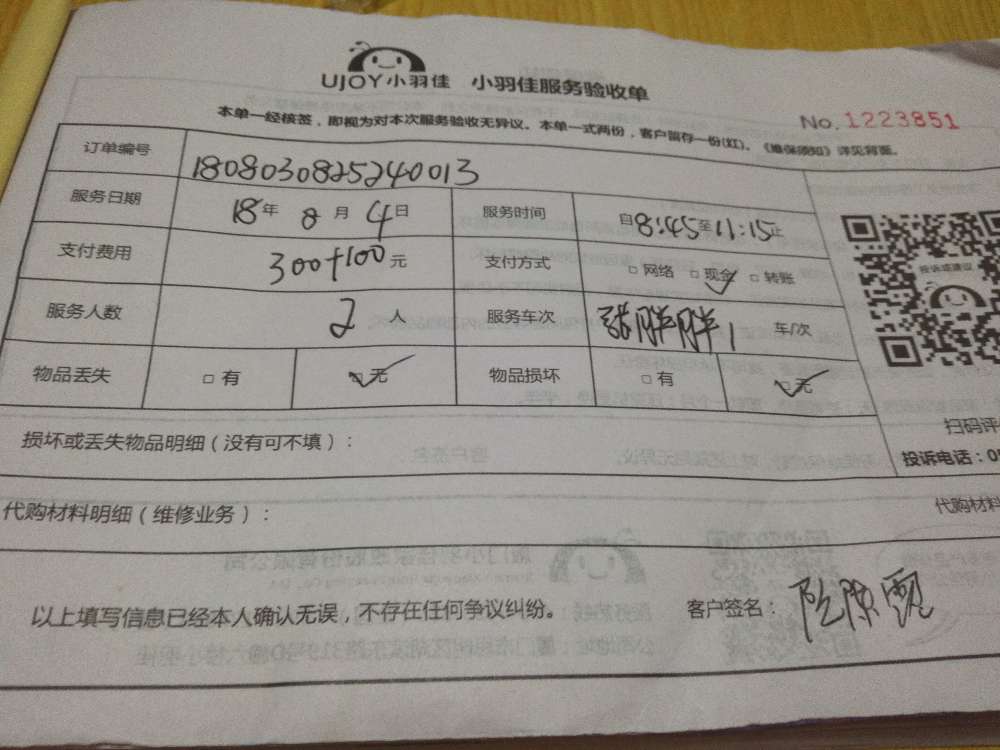 UJOY小羽佳 小羽佳服务验收单
No.1223851
本单一经核签，即视为对本次服务验收无异议。本单一式两份，客户留存一份(红)。《维保须知》详见背面。
订单编号 1808030825240013
服务日期 18年 8月 4日 服务时间 自8:45至11:15止
支付费用 300+100元 支付方式 □网络 □现金 □转账
服务人数 2人 服务车次 胖胖1 车/次
物品丢失 □有 □无 物品损坏 □有 □无
投诉或建议
扫码评
投诉电话：05
损坏或丢失物品明细（没有可不填）：
代购材料明细（维修业务）： 代购材料
以上填写信息已经本人确认无误，不存在任何争议纠纷。 客户签名：